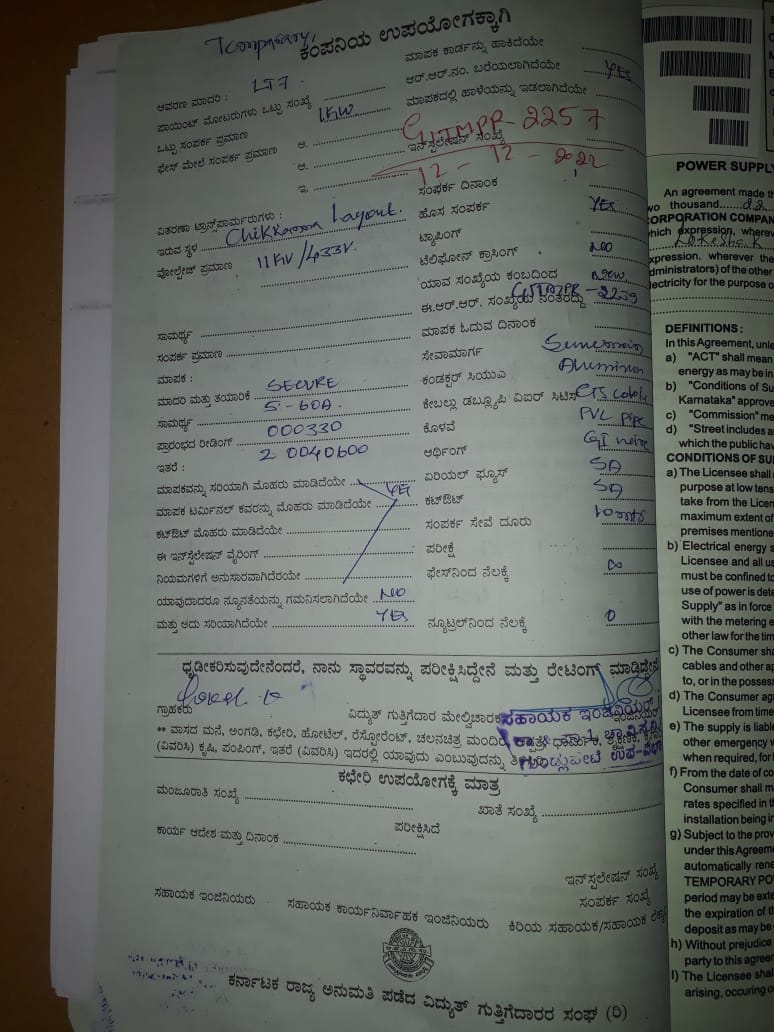 Temporary,
ಕಂಪನಿಯ ಉಪಯೋಗಕ್ಕಾಗಿ
ಆವರಣ ಮಾದರಿ : LT7
ಪಾಯಿಂಟ್ ಮೋಟರುಗಳು ಒಟ್ಟು ಸಂಖ್ಯೆ
ಒಟ್ಟು ಸಂಪರ್ಕ ಪ್ರಮಾಣ 1KW
ಫೇಸ್ ಮೇಲೆ ಸಂಪರ್ಕ ಪ್ರಮಾಣ ಆ.
ಆ.
ಇ.
ಮಾಪಕ ಕಾರ್ಡನ್ನು ಹಾಕಿದೆಯೇ
ಆರ್.ಆರ್.ನಂ. ಬರೆಯಲಾಗಿದೆಯೇ YES
ಮಾಪಕದಲ್ಲಿ ಹಾಳೆಯನ್ನು ಇಡಲಾಗಿದೆಯೇ
GJTMPR-2257
ಇನ್‌ಸ್ಟಲೇಷನ್ ಸಂಖ್ಯೆ
12-12-2022
ಸಂಪರ್ಕ ದಿನಾಂಕ
ವಿತರಣಾ ಟ್ರಾನ್ಸ್‌ಫಾರ್ಮರುಗಳು :
ಇರುವ ಸ್ಥಳ Chikkanna Layout.
ವೋಲ್ಟೇಜ್ ಪ್ರಮಾಣ 11KV/433V.
ಹೊಸ ಸಂಪರ್ಕ YES
ಟ್ಯಾಪಿಂಗ್
ಟೆಲಿಫೋನ್ ಕ್ರಾಸಿಂಗ್ NO
ಯಾವ ಸಂಖ್ಯೆಯ ಕಂಬದಿಂದ New
ಈ.ಆರ್.ಆರ್. ಸಂಖ್ಯೆಯ ನಂತರದ್ದು
ಮಾಪಕ ಓದುವ ದಿನಾಂಕ
ಸಾಮರ್ಥ್ಯ
ಸಂಪರ್ಕ ಪ್ರಮಾಣ
ಸೇವಾಮಾರ್ಗ
ಮಾಪಕ :
ಮಾದರಿ ಮತ್ತು ತಯಾರಿಕೆ SECURE
ಸಾಮರ್ಥ್ಯ 5-60A.
ಪ್ರಾರಂಭದ ರೀಡಿಂಗ್ 000330
ಇತರೆ : 20040600
ಕಂಡಕ್ಟರ್ ಸಿಯುವಿ Aluminum
ಕೇಬಲ್ಲು ಡಬ್ಲ್ಯೂಪಿ ವಿಐಆರ್ ಸಿಟಿಸ್ CTS cable
ಕೊಳವೆ PVC pipe
ಅರ್ಥಿಂಗ್ GI
ಮಾಪಕವನ್ನು ಸರಿಯಾಗಿ ಮೊಹರು ಮಾಡಿದೆಯೇ
ಏರಿಯಲ್ ಫ್ಯೂಸ್ 5A
ಮಾಪಕ ಟರ್ಮಿನಲ್ ಕವರನ್ನು ಮೊಹರು ಮಾಡಿದೆಯೇ YES
ಕಟ್‌ಔಟ್ 5A
ಕಟ್‌ಔಟ್ ಮೊಹರು ಮಾಡಿದೆಯೇ
ಸಂಪರ್ಕ ಸೇವೆ ದೂರು
ಈ ಇನ್‌ಸ್ಟಲೇಷನ್ ವೈರಿಂಗ್
ಪರೀಕ್ಷೆ
ನಿಯಮಗಳಿಗೆ ಅನುಸಾರವಾಗಿದೆರಯೇ
ಫೇಸ್‌ನಿಂದ ನೆಲಕ್ಕೆ ∞
ಯಾವುದಾದರೂ ನ್ಯೂನತೆಯನ್ನು ಗಮನಿಸಲಾಗಿದೆಯೇ NO
ಮತ್ತು ಅದು ಸರಿಯಾಗಿದೆಯೇ YES
ನ್ಯೂಟ್ರಲ್‌ನಿಂದ ನೆಲಕ್ಕೆ 0
ಧೃಡೀಕರಿಸುವುದೇನೆಂದರೆ, ನಾನು ಸ್ಥಾವರವನ್ನು ಪರೀಕ್ಷಿಸಿದ್ದೇನೆ ಮತ್ತು ರೇಟಿಂಗ್ ಮಾಡಿದ್ದೇನೆ
ಗ್ರಾಹಕರು
ವಿದ್ಯುತ್ ಗುತ್ತಿಗೆದಾರ ಮೇಲ್ವಿಚಾರಕ
ಸಹಾಯಕ ಇಂಜಿನಿಯರ್
** ವಾಸದ ಮನೆ, ಅಂಗಡಿ, ಕಛೇರಿ, ಹೋಟೆಲ್, ರೆಸ್ಟೋರೆಂಟ್, ಚಲನಚಿತ್ರ ಮಂದಿರ
(ವಿವರಿಸಿ) ಕೃಷಿ, ಪಂಪಿಂಗ್, ಇತರೆ (ವಿವರಿಸಿ) ಇದರಲ್ಲಿ ಯಾವುದು ಎಂಬುವುದನ್ನು
ಗುಂಡ್ಲುಪೇಟೆ ಉಪ-ವಿಭಾಗ
ಕಛೇರಿ ಉಪಯೋಗಕ್ಕೆ ಮಾತ್ರ
ಮಂಜೂರಾತಿ ಸಂಖ್ಯೆ
ಖಾತೆ ಸಂಖ್ಯೆ
ಪರೀಕ್ಷಿಸಿದೆ
ಕಾರ್ಯ ಆದೇಶ ಮತ್ತು ದಿನಾಂಕ
ಇನ್‌ಸ್ಟಲೇಷನ್ ಸಂಖ್ಯೆ
ಸಂಪರ್ಕ ಸಂಖ್ಯೆ
ಸಹಾಯಕ ಇಂಜಿನಿಯರು
ಸಹಾಯಕ ಕಾರ್ಯನಿರ್ವಾಹಕ ಇಂಜಿನಿಯರು
ಕಿರಿಯ ಸಹಾಯಕ/ಸಹಾಯಕ
ಕರ್ನಾಟಕ ರಾಜ್ಯ ಅನುಮತಿ ಪಡೆದ ವಿದ್ಯುತ್ ಗುತ್ತಿಗೆದಾರರ ಸಂಘ (ರಿ)
POWER SUPPLY
An agreement made
two thousand 22
CORPORATION COMPAN
which expression, wherev
expression, wherever the
administrators) of the other
electricity for the purpose o
DEFINITIONS :
In this Agreement, unle
a) "ACT" shall mean
energy as may be in
b) "Conditions of Su
Karnataka" approve
c) "Commission" me
d) "Street includes a
which the public ha
CONDITIONS OF SU
a) The Licensee shall
purpose at low tens
take from the Licen
maximum extent of
premises mentione
b) Electrical energy s
Licensee and all us
must be confined to
use of power is dete
Supply" as in force
with the metering e
other law for the tim
c) The Consumer sha
cables and other ap
to, or in the possess
d) The Consumer ag
Licensee from time
e) The supply is liabl
other emergency w
when required, for
f) From the date of co
Consumer shall m
rates specified in t
installation being in
g) Subject to the prov
under this Agreem
automatically rene
TEMPORARY PO
period may be exte
the expiration of t
deposit as may be
h) Without prejudice
party to this agree
I) The Licensee shal
arising, occuring o